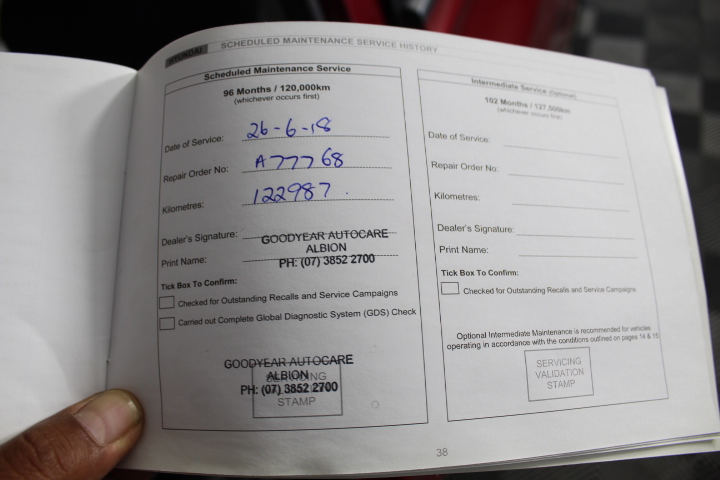 HYUNDAI SCHEDULED MAINTENANCE SERVICE HISTORY
Scheduled Maintenance Service
96 Months / 120,000km
(whichever occurs first)
Date of Service: 26-6-18
Repair Order No: A77768
Kilometres: 122987.
Dealer's Signature:
Print Name:
GOODYEAR AUTOCARE
ALBION
PH: (07) 3852 2700
Tick Box To Confirm:
Checked for Outstanding Recalls and Service Campaigns
Carried out Complete Global Diagnostic System (GDS) Check
GOODYEAR AUTOCARE
ALBION
PH: (07) 3852 2700
STAMP
Intermediate Service (Optional)
102 Months / 127,500km
(whichever occurs first)
Date of Service:
Repair Order No:
Kilometres:
Dealer's Signature:
Print Name:
Tick Box To Confirm:
Checked for Outstanding Recalls and Service Campaigns
Optional Intermediate Maintenance is recommended for vehicles
operating in accordance with the conditions outlined on pages 14 & 15
SERVICING
VALIDATION
STAMP
38